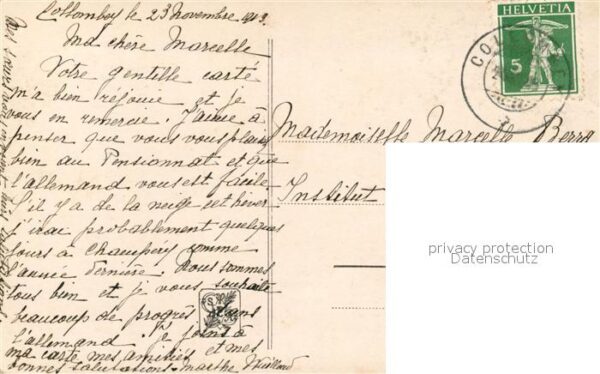 Collombey le 23 Novembre 1913.
Ma chère Marcelle
Votre gentille carte
m'a bien réjouie et je
vous en remercie. J'aime à
penser que vous vous plaisez
bien au Pensionnat et que
l'allemand vous est facile
S'il y a de la neige cet hiver
j'irai probablement quelques
jours à Champéry comme
l'année dernière Nous sommes
tous bien et je vous souhaite
beaucoup de progrès dans
l'allemand. Je joins à
ma carte mes amitiés et mes
bonnes salutations. Marthe
HELVETIA
5
COL
Mademoiselle Marcelle Berra
Institut
privacy protection
Datenschutz